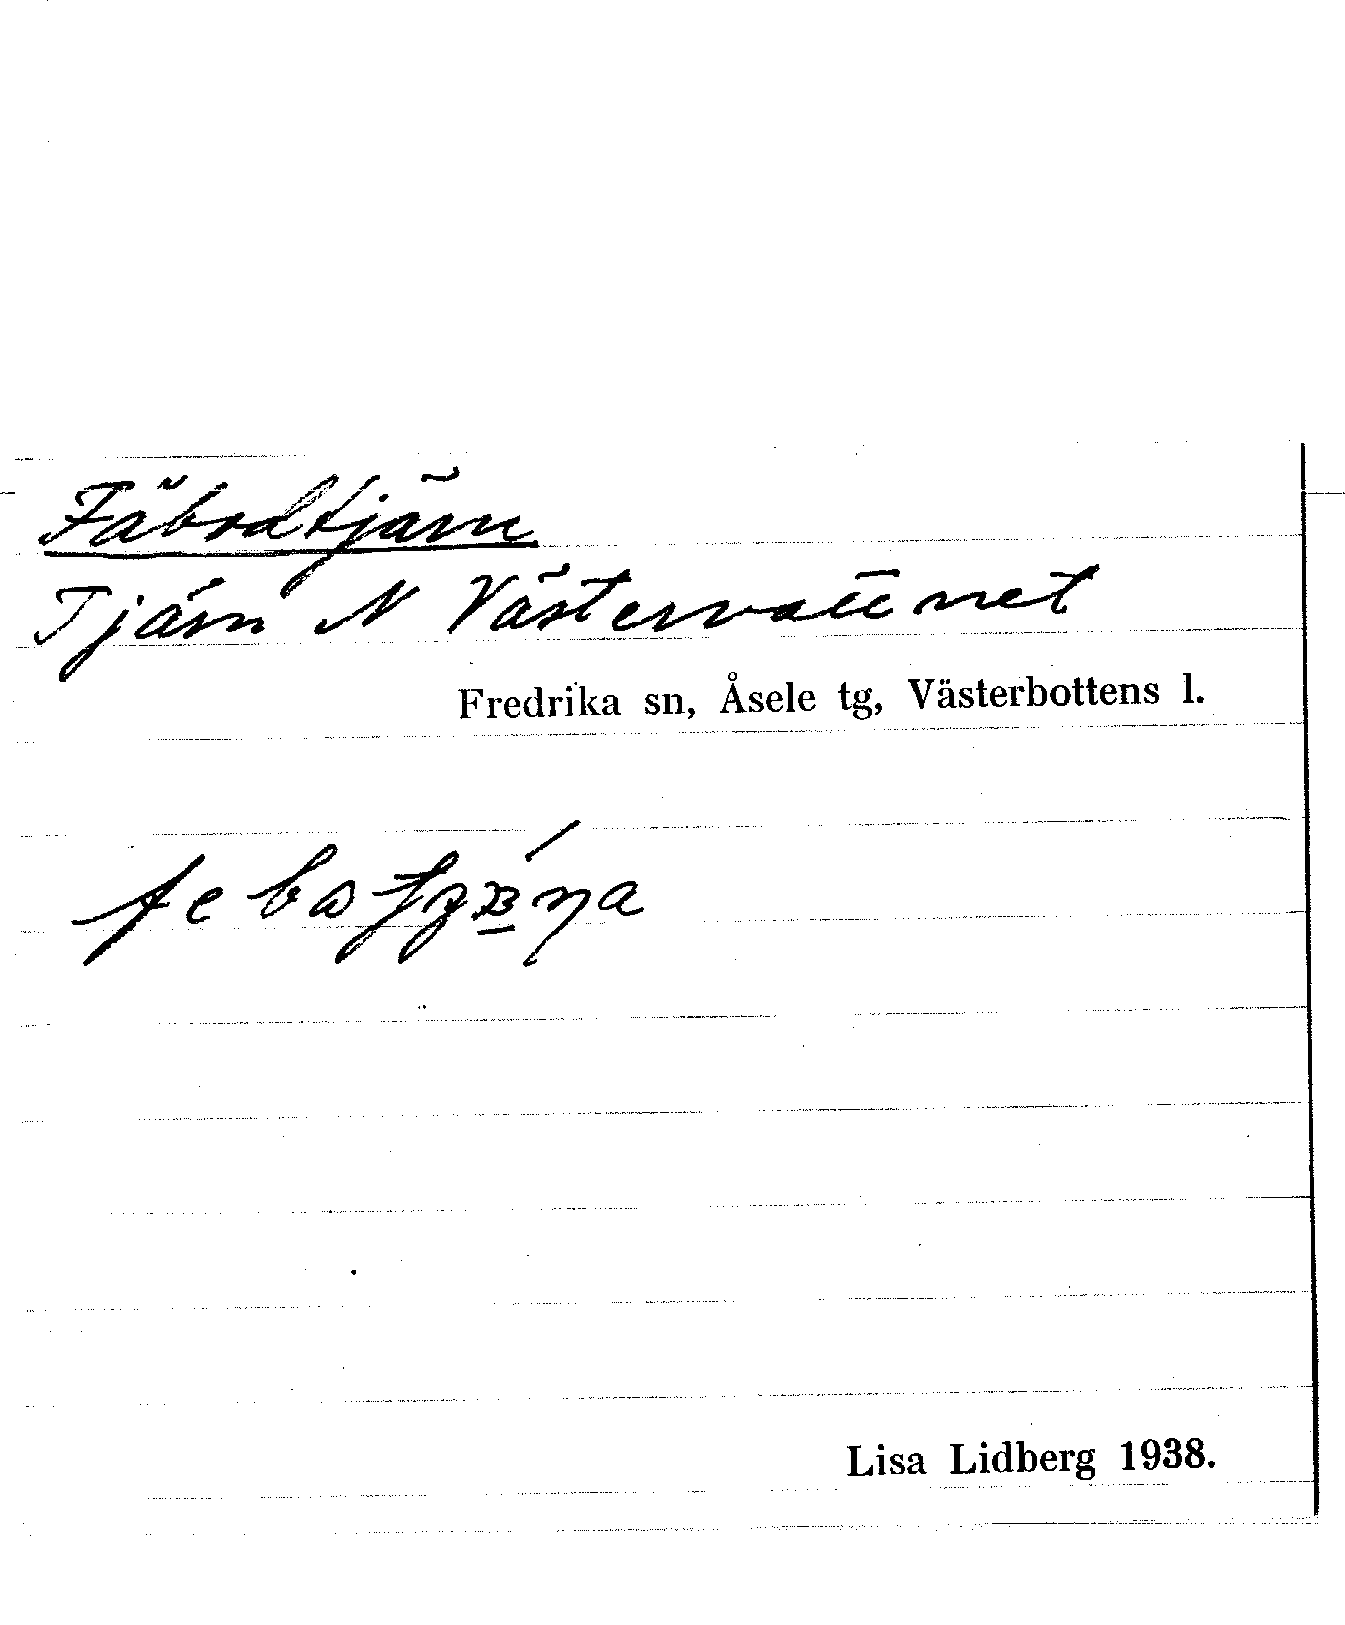 Fäbodtjärn
Tjärn N Västervattnet
Fredrika sn, Åsele tg, Västerbottens l.
Lisa Lidberg 1938.